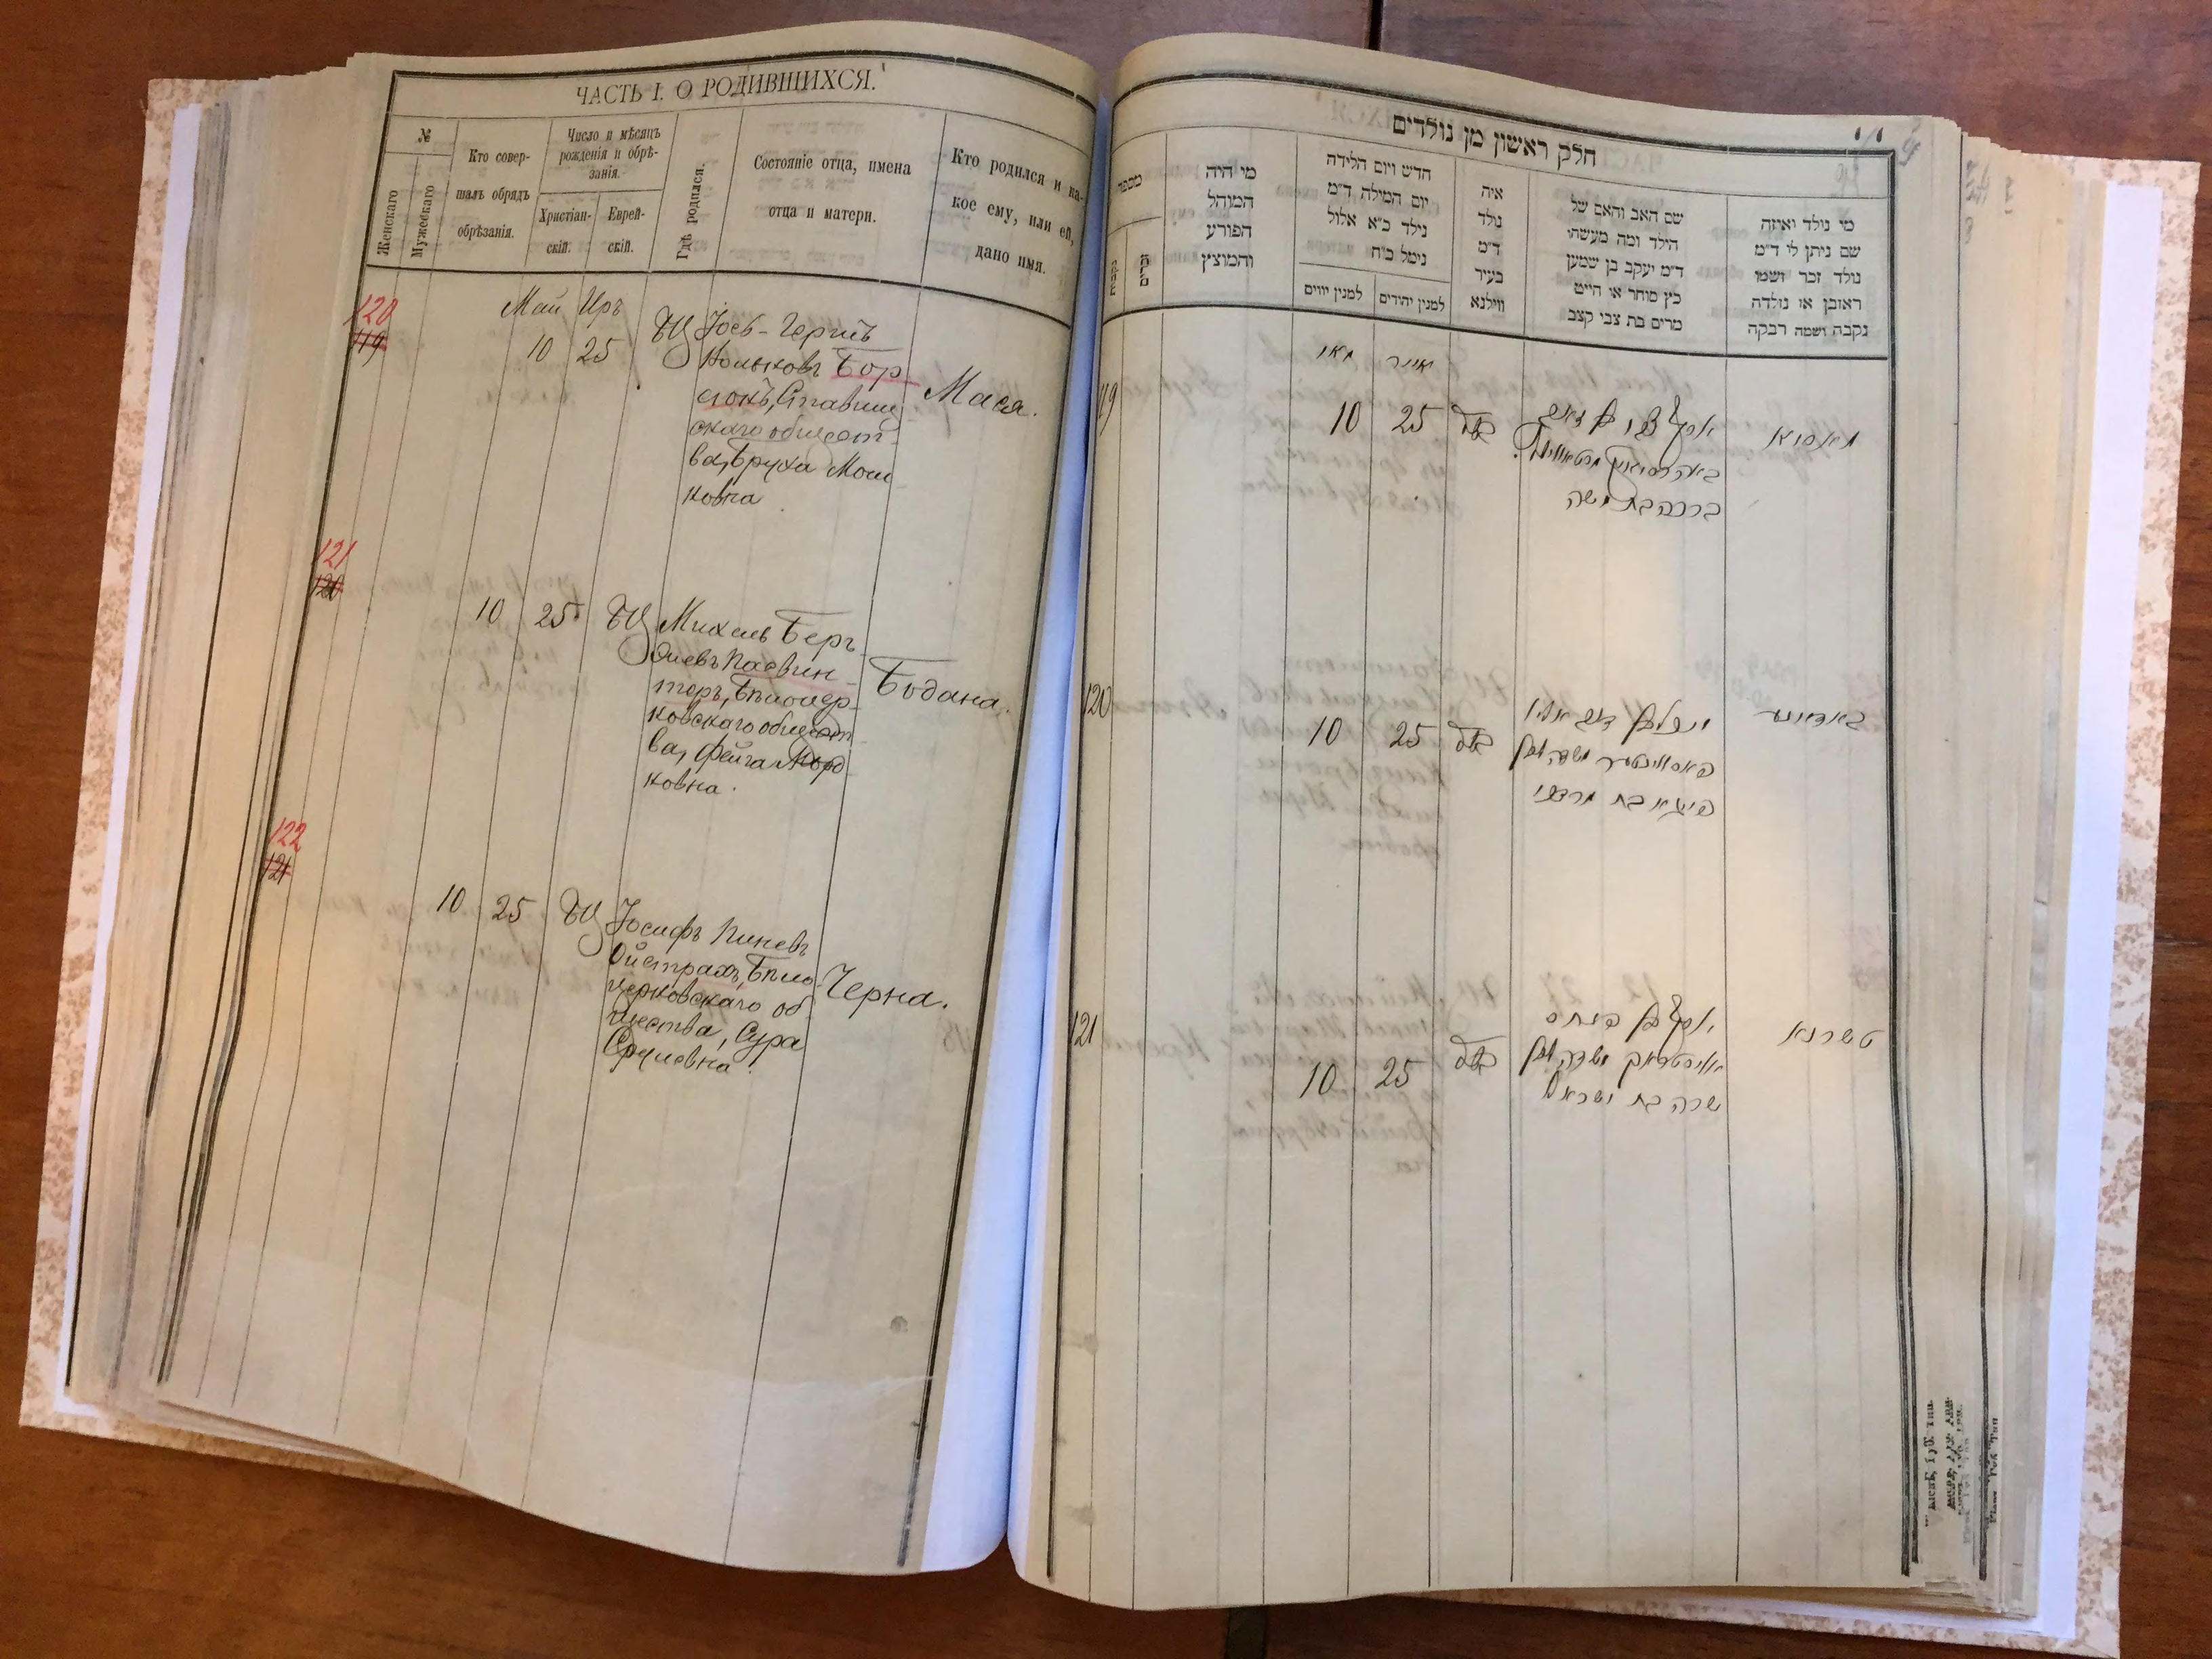 ЧАСТЬ I. О РОДИВШИХСЯ.
№
Женскаго
Мужескаго
Кто совер-
шалъ обрядъ
обрѣзанія.
Число и мѣсяцъ
рожденія и обрѣ-
занія.
Христіан-
скій.
Еврей-
скій.
Гдѣ родился.
Состояніе отца, имена
отца и матери.
Кто родился и ка-
кое ему, или ей,
дано имя.
Май Иръ
120
119
10 25 БЦ
Іось-Гершъ
Бор
Ставищ
скаго общест-
ва, Бруха Мош
ковна
Мася.
121
120
10 25 БЦ
Михель Бер
ковскаго общест
ва, Фейга Морд
ковна.
Бодана.
122
121
10 25 БЦ
Іосифъ Пинев
Ойстрахъ, Бѣло
церковскаго об
щества, Сура
Срулевна.
Черна.
חלק ראשון מן נולדים
מספר
נקבות
זכרים
מי היה
המוהל
הפורע
והמוצץ
חדש ויום הלידה
יום המילה ד״מ
נילד כ״א אלול
נימל כ״ח
למנין יוונים
למנין יהודים
איה
נולד
ד״מ
בעיר
ווילנא
שם האב והאם של
הילד ומה מעשהו
ד״מ יעקב בן שמען
כץ סוחר או חייט
מרים בת צבי קצב
מי נולד ואיזה
שם ניתן לו ד״מ
נולד זכר ושמו
ראובן או נולדה
נקבה ושמה רבקה
מאי אייר
119
10 25
ברכה בת משה
מאסיא
120
10 25
פייגא בת מרדכי
באדאנע
121
10 25
יוסף בן פנחס
שרה בת ישראל
טשרנא